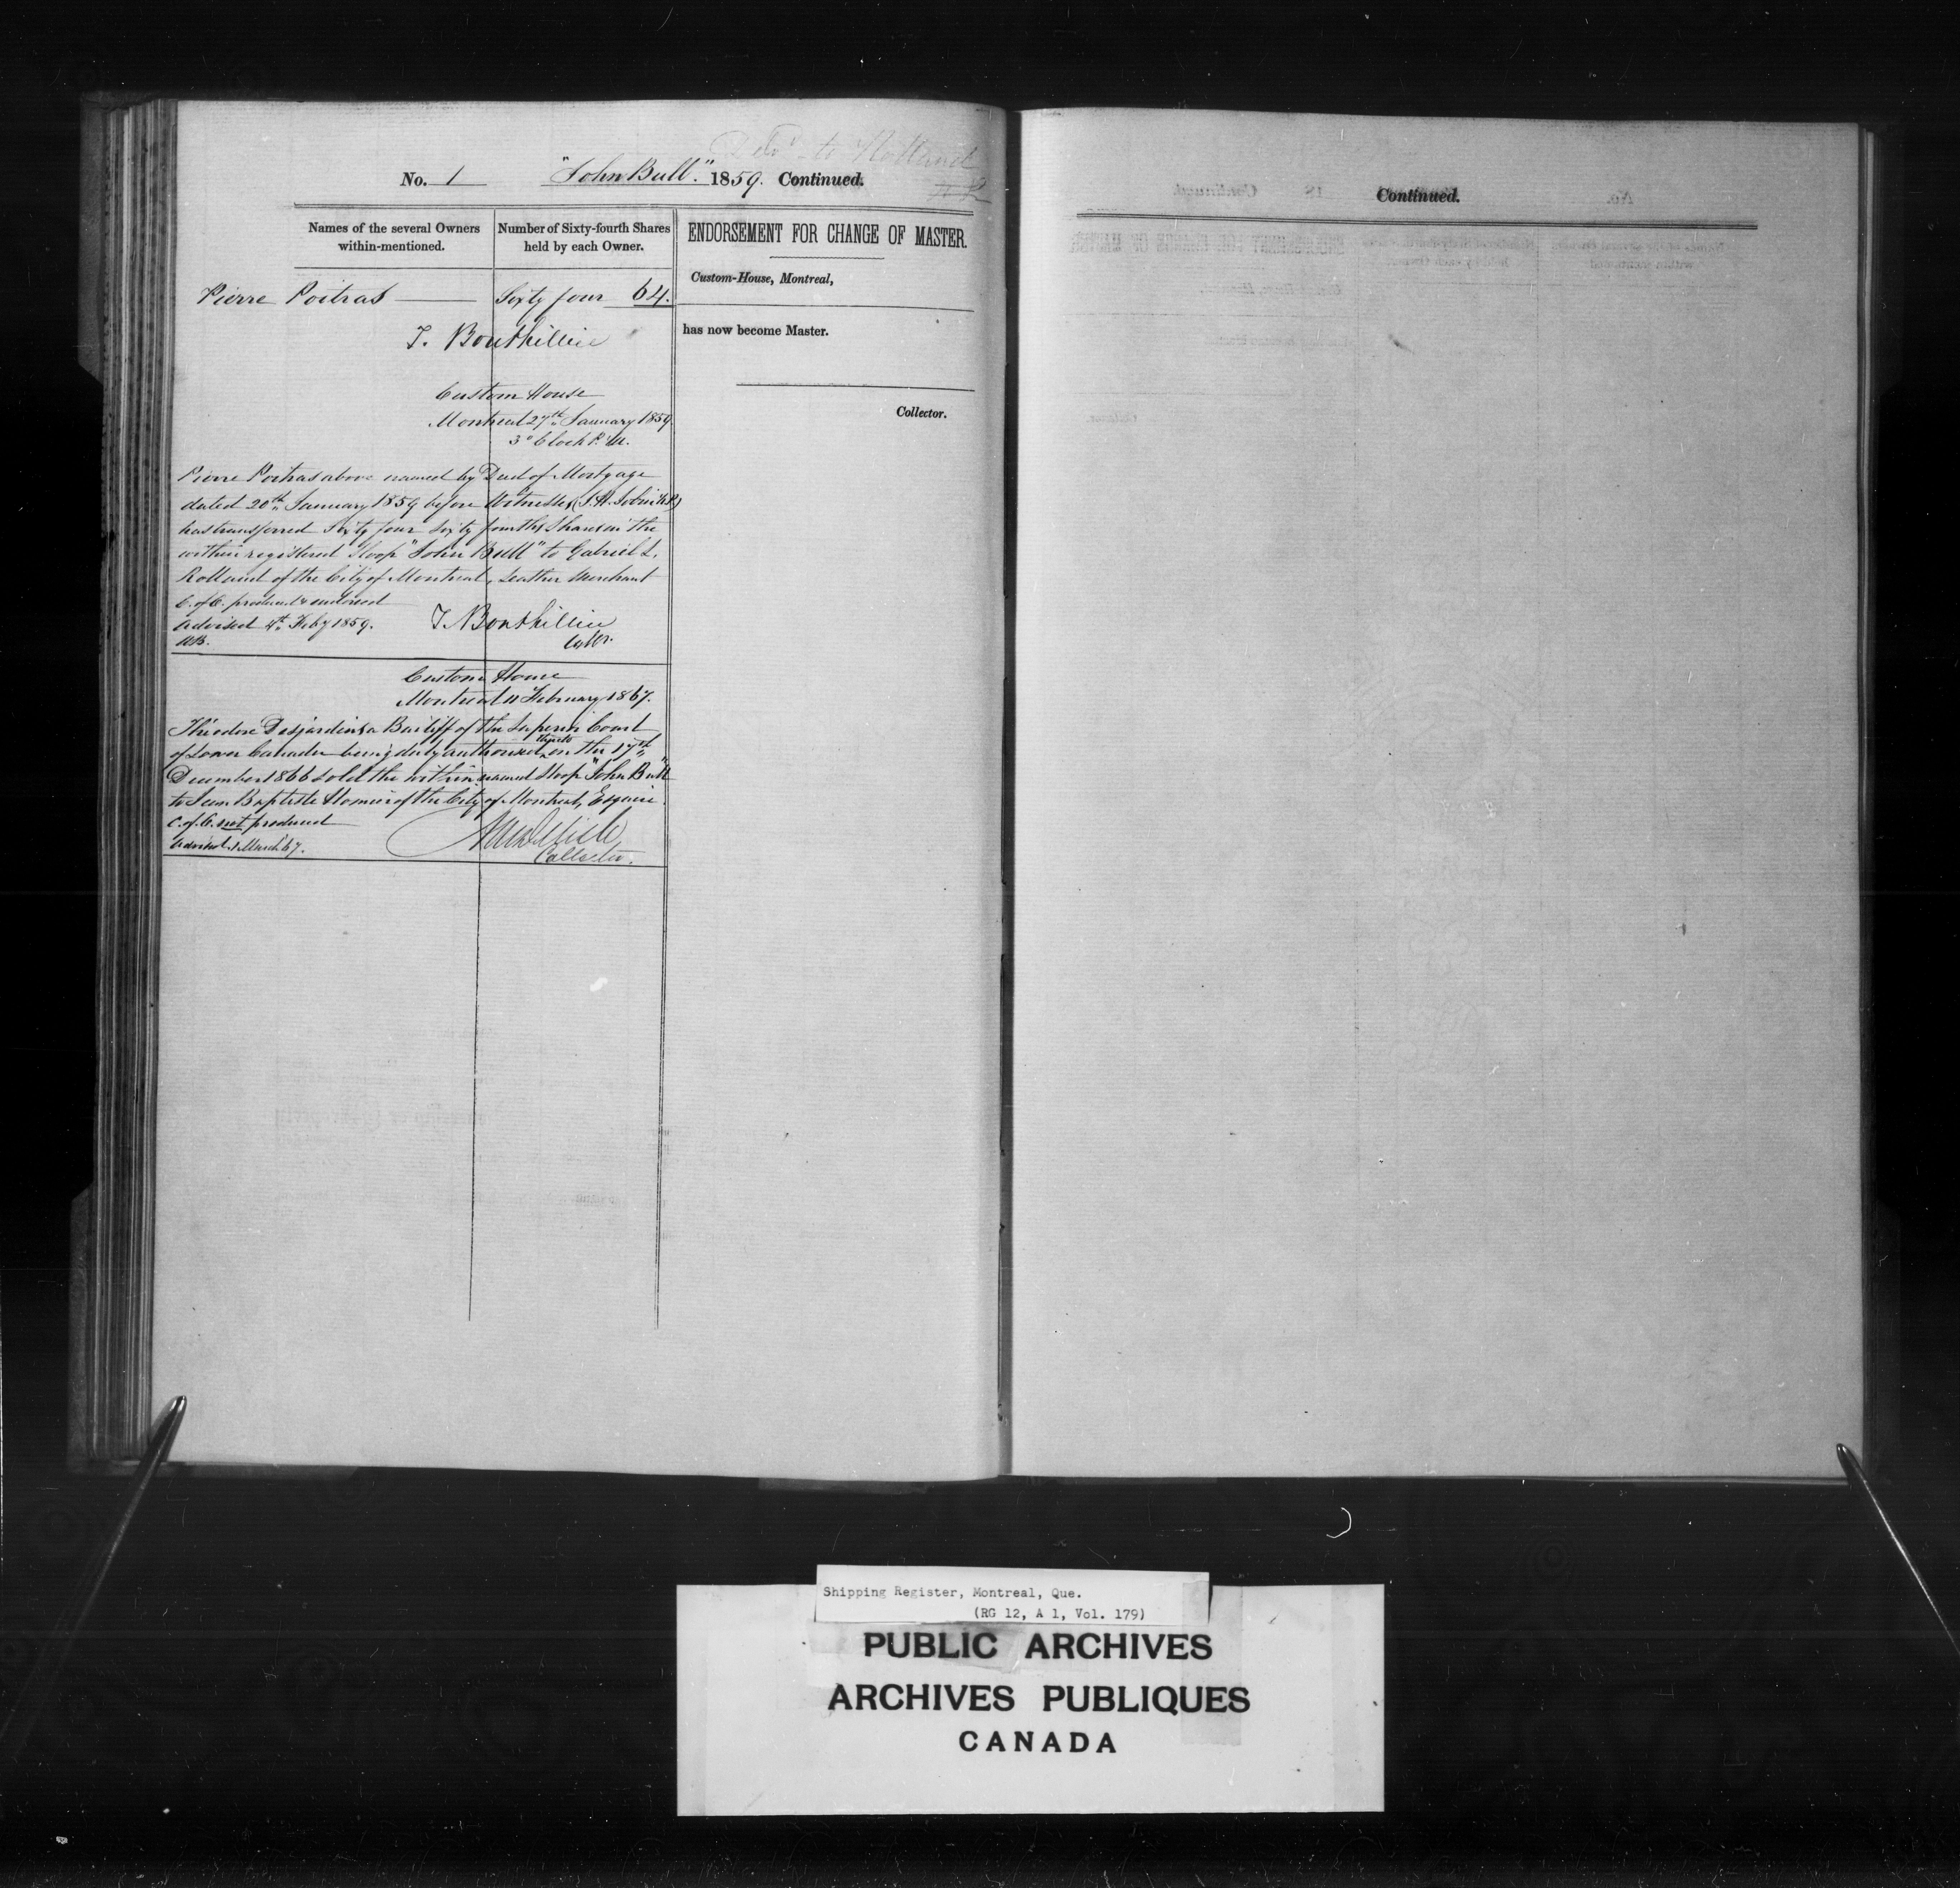 to
No. 1 "John Bull." 1859. Continued.
Names of the several Owners within-mentioned.
Number of Sixty-fourth Shares held by each Owner.
Pierre Poitras Sixty four 64.
T. Bouthillier
Custom House
Montreal 27th January 1859
3 o'Clock P.M.
Pierre Poitras above named by Deed of Mortgage
dated 20th January 1859 before Witnesses
has transferred Sixty four Sixty fourths Shares in the
within registered Sloop "John Bull" to Gabriel L.
Rolland of the City of Montreal, Leather Merchant
C. of C. produced & endorsed
Advised 4th Feby 1859.
T. Bouthillier
Collr.
Custom House
Montreal 11 February 1867.
Théodore Desjardins a Bailiff of the Superior Court
of Lower Canada being duly authorized thereto on the 17th
December 1866 sold the within named Sloop "John Bull"
to Jean Baptiste Homier of the City of Montreal, Esquire
C. of C. not produced
Advised 1 March 67.
Collector.
ENDORSEMENT FOR CHANGE OF MASTER.
Custom-House, Montreal,
has now become Master.
Collector.
Continued.
Shipping Register, Montreal, Que.
(RG 12, A 1, Vol. 179)
PUBLIC ARCHIVES
ARCHIVES PUBLIQUES
CANADA